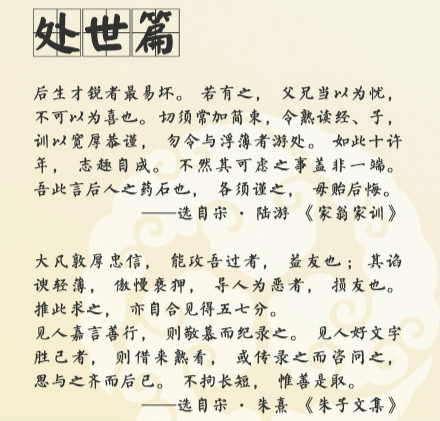 处世篇
后生才锐者最易坏。 若有之， 父兄当以为忧，
不可以为喜也。 切须常加简束，令熟读经、子，
训以宽厚恭谨， 勿令与浮薄者游处。 如此十许
年， 志趣自成。 不然其可虑之事盖非一端。
吾此言后人之药石也， 各须谨之， 毋贻后悔。
——选自宋 · 陆游 《家翁家训》
大凡敦厚忠信， 能攻吾过者， 益友也； 其谄
谀轻薄， 傲慢亵狎， 导人为恶者， 损友也。
推此求之， 亦自合见得五七分。
见人嘉言善行， 则敬慕而纪录之。 见人好文字
胜己者， 则借来熟看， 或传录之而咨问之，
思与之齐而后已。 不拘长短， 惟善是取。
——选自宋 · 朱熹 《朱子文集》